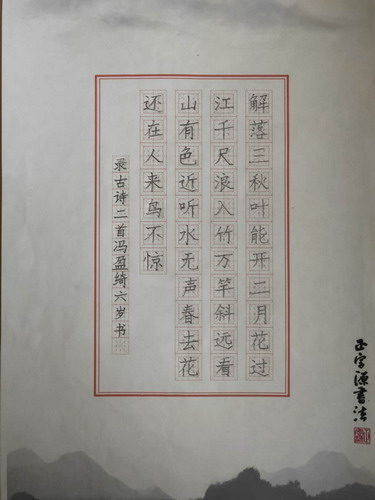 解落三秋叶能开二月花过
江千尺浪入竹万竿斜远看
山有色近听水无声春去花
还在人来鸟不惊
录古诗二首冯盈绮六岁书
正字源书法